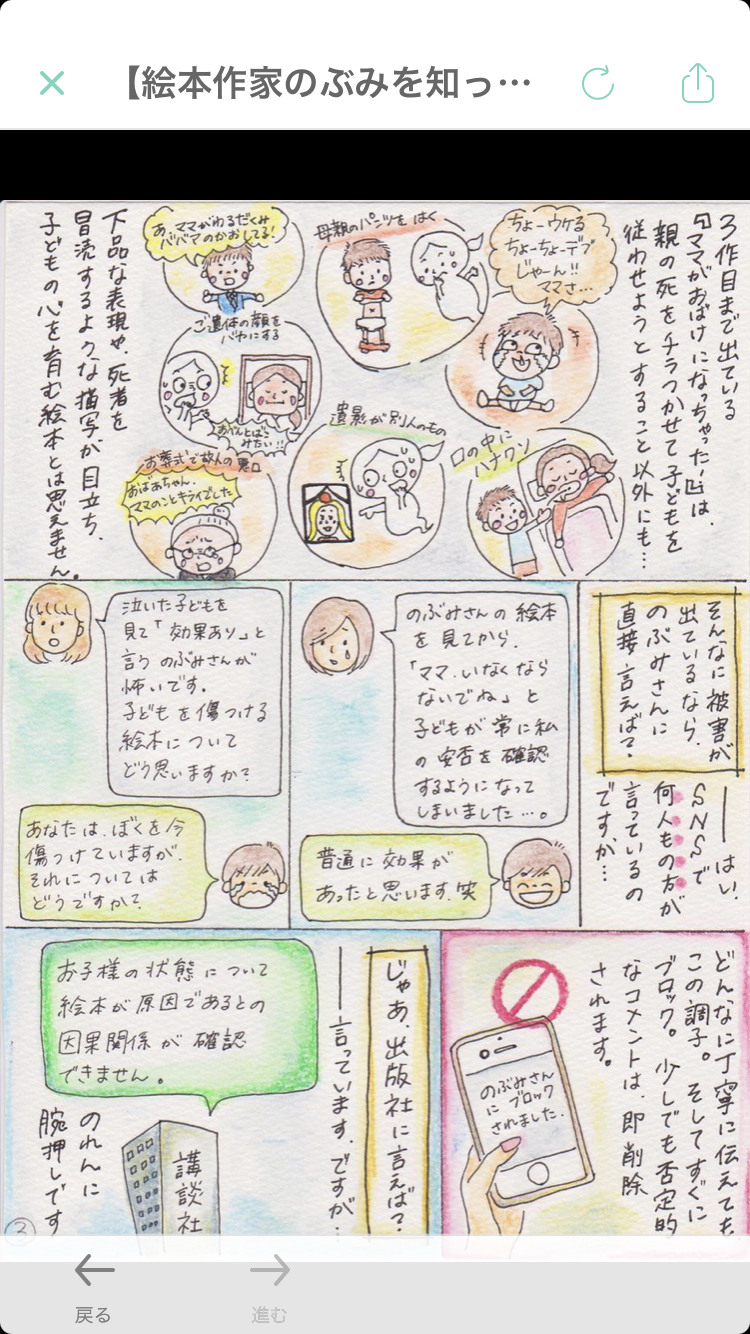 【絵本作家のぶみを知っ…
3作目まで出ている
『ママがおばけになっちゃった!』は、
親の死をチラつかせて子どもを
従わせようとすること以外にも…
ちょーウケる
ちょーちょーデブ
じゃーん!!
ママさ…
母親のパンツをはく
あ、ママがわるだくみ
ババマのかおしてる!
ご遺体の顔を
バカにする
おべんとばこ
みたい!!
遺影が別人のもの
口の中に
ハナクソ
お葬式で故人の悪口
おばあちゃん、
ママのことキライでした
下品な表現や、死者を
冒涜するような描写が目立ち、
子どもの心を育む絵本とは思えません。
そんなに被害が
出ているなら、
のぶみさんに
直接言えば?
――はい、
SNSで
何人もの方が
言っているの
ですが…
のぶみさんの絵本
を見てから、
「ママ、いなくなら
ないでね」と
子どもが常に私
の安否を確認
するようになって
しまいました…。
普通に効果が
あったと思います、笑
泣いた子どもを
見て「効果あり」と
言うのぶみさんが
怖いです。
子どもを傷つける
絵本について
どう思いますか?
あなたは、ぼくを今
傷つけていますが、
それについては
どうですか?
どんなに丁寧に伝えても
この調子。そしてすぐに
ブロック。少しでも否定的
なコメントは、即削除
されます。
のぶみさん
にブロック
されました.
じゃあ、出版社に言えば?
――言っています、ですが…
お子様の状態について
絵本が原因であるとの
因果関係が確認
できません。
講談社
のれんに
腕押しです
3
戻る
進む